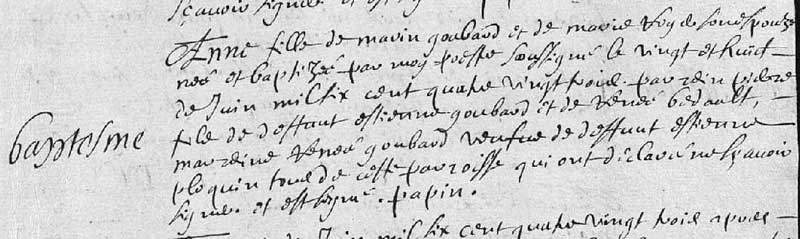 sçavoir signer et est
Anne fille de marin goubard et de marie Roy de son espouze
née et baptizée par moy pbstre soussigné le vingt et huict
de Juin mil six cent quatre vingt trois. parrein pierre
baptesme
fils de deffunt estienne goubard et de Renée bedault,
marreine Renée goubard veufve de deffunt estienne
ploquin tous de cette parroisse qui ont déclaré ne sçavoir
signer et est signé. papin.
de Juin mil six cent quatre vingt trois apres